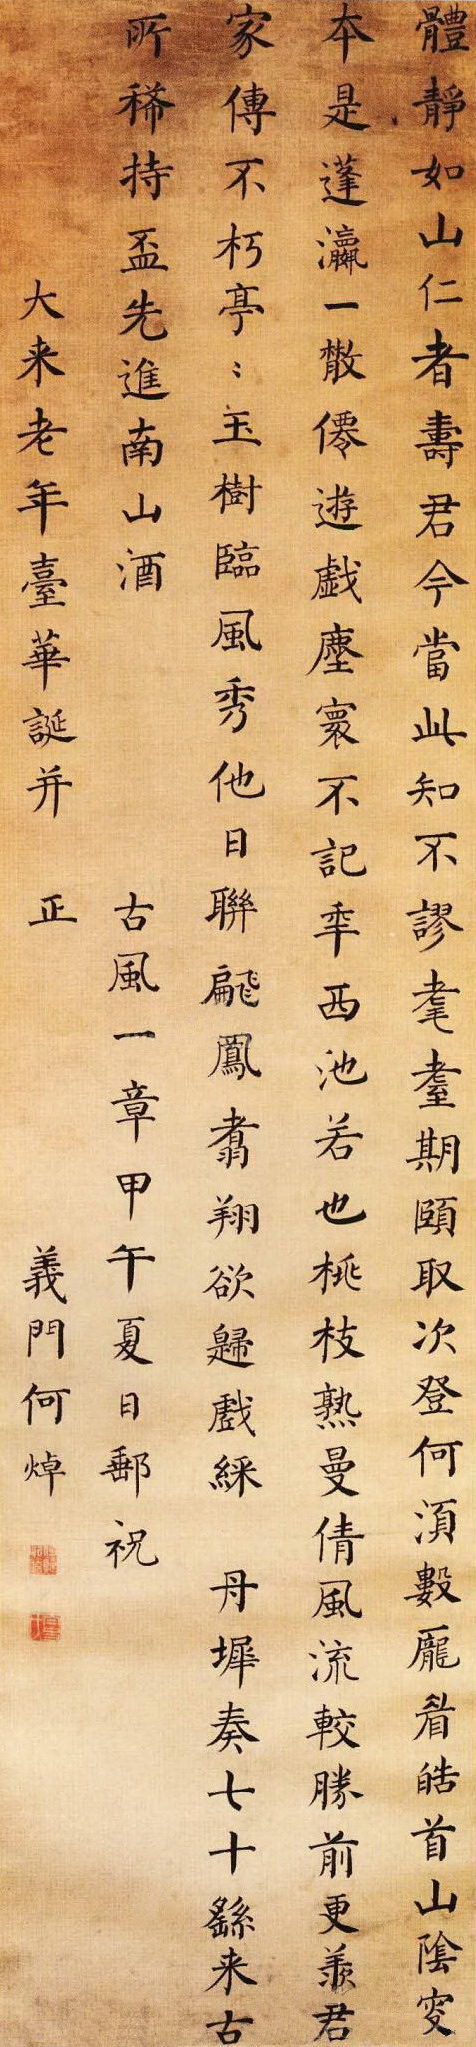 體靜如山仁者壽君今當此知不謬耄耋期頤取次登何須數龎眉皓首山陰叜
本是蓬瀛一散僊遊戲塵寰不記秊西池若也桃枝熟曼倩風流較勝前更羨君
家傳不朽亭〻玉樹臨風秀他日聯翩鳳翥翔欲歸戲綵 丹墀奏七十繇来古
所稀持盃先進南山酒 古風一章甲午夏日郵祝
大来老年臺華誕并 正 義門何焯